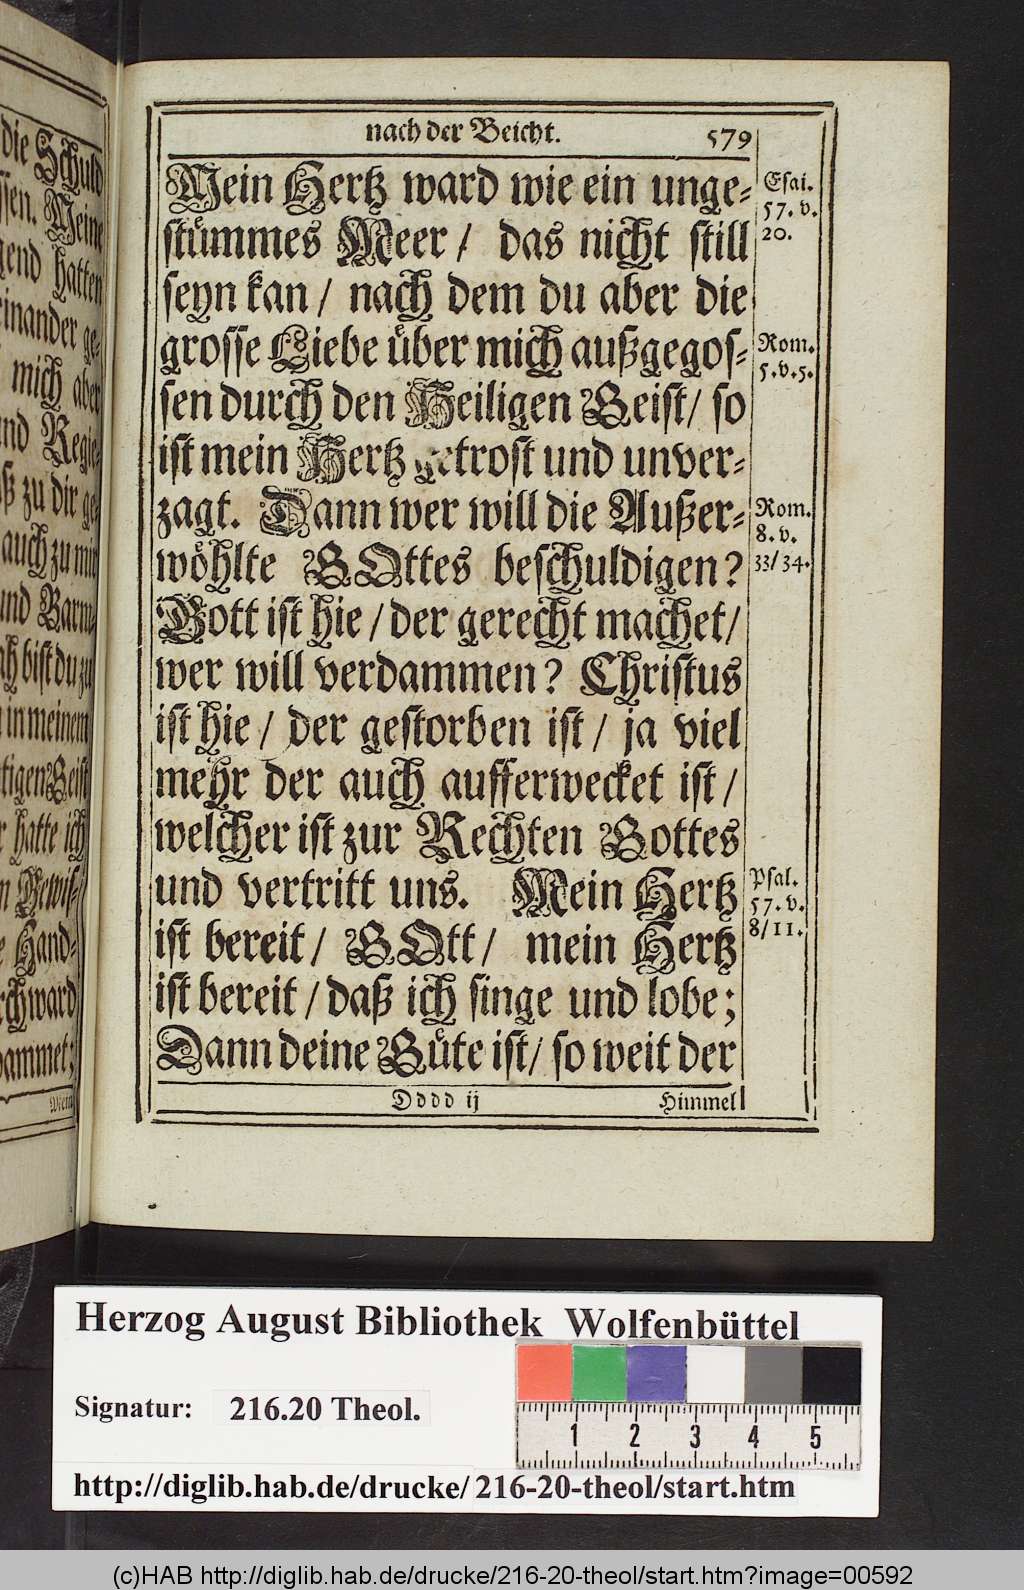 die Schuld
ssen. Meine
gend hatten
einander ge-
mich aber
und Regie-
aß zu dir ge-
auch zu mir
und Barm-
ah bist du zu
in meinem
tigen Geist
r hatte ich
n Gewis-
e Hand-
rch ward
ammet;
Mein
nach der Beicht. 579
Mein Hertz ward wie ein unge-
stümmes Meer / das nicht still
seyn kan / nach dem du aber die
grosse Liebe über mich außgegos-
sen durch den Heiligen Geist / so
ist mein Hertz getrost und unver-
zagt. Dann wer will die Außer-
wöhlte GOttes beschuldigen?
Gott ist hie / der gerecht machet /
wer will verdammen? Christus
ist hie / der gestorben ist / ja viel
mehr der auch aufferwecket ist /
welcher ist zur Rechten Gottes
und vertritt uns. Mein Hertz
ist bereit / GOtt / mein Hertz
ist bereit / daß ich singe und lobe;
Dann deine Güte ist / so weit der
Esai.
57. v.
20.
Rom.
5. v. 5.
Rom.
8. v.
33/34.
Psal.
57. v.
8/11.
Dddd ij Himmel
Herzog August Bibliothek Wolfenbüttel
Signatur: 216.20 Theol.
1 2 3 4 5
http://diglib.hab.de/drucke/216-20-theol/start.htm
(c)HAB http://diglib.hab.de/drucke/216-20-theol/start.htm?image=00592